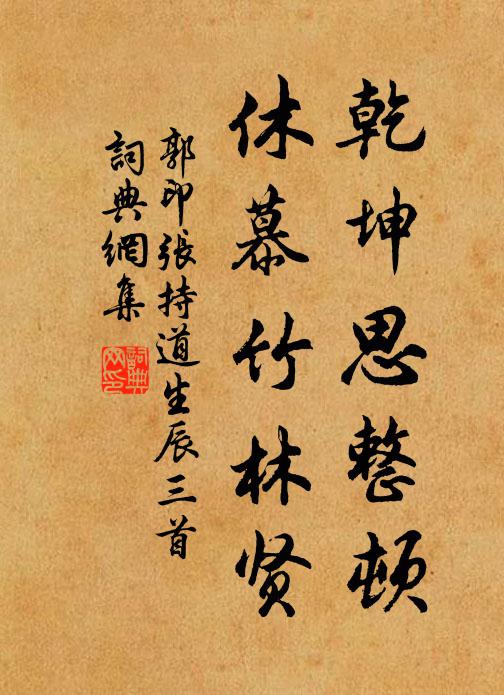 乾坤思整顿
休慕竹林贤
郭印張持道生辰三首
詞典網集
詞典網印